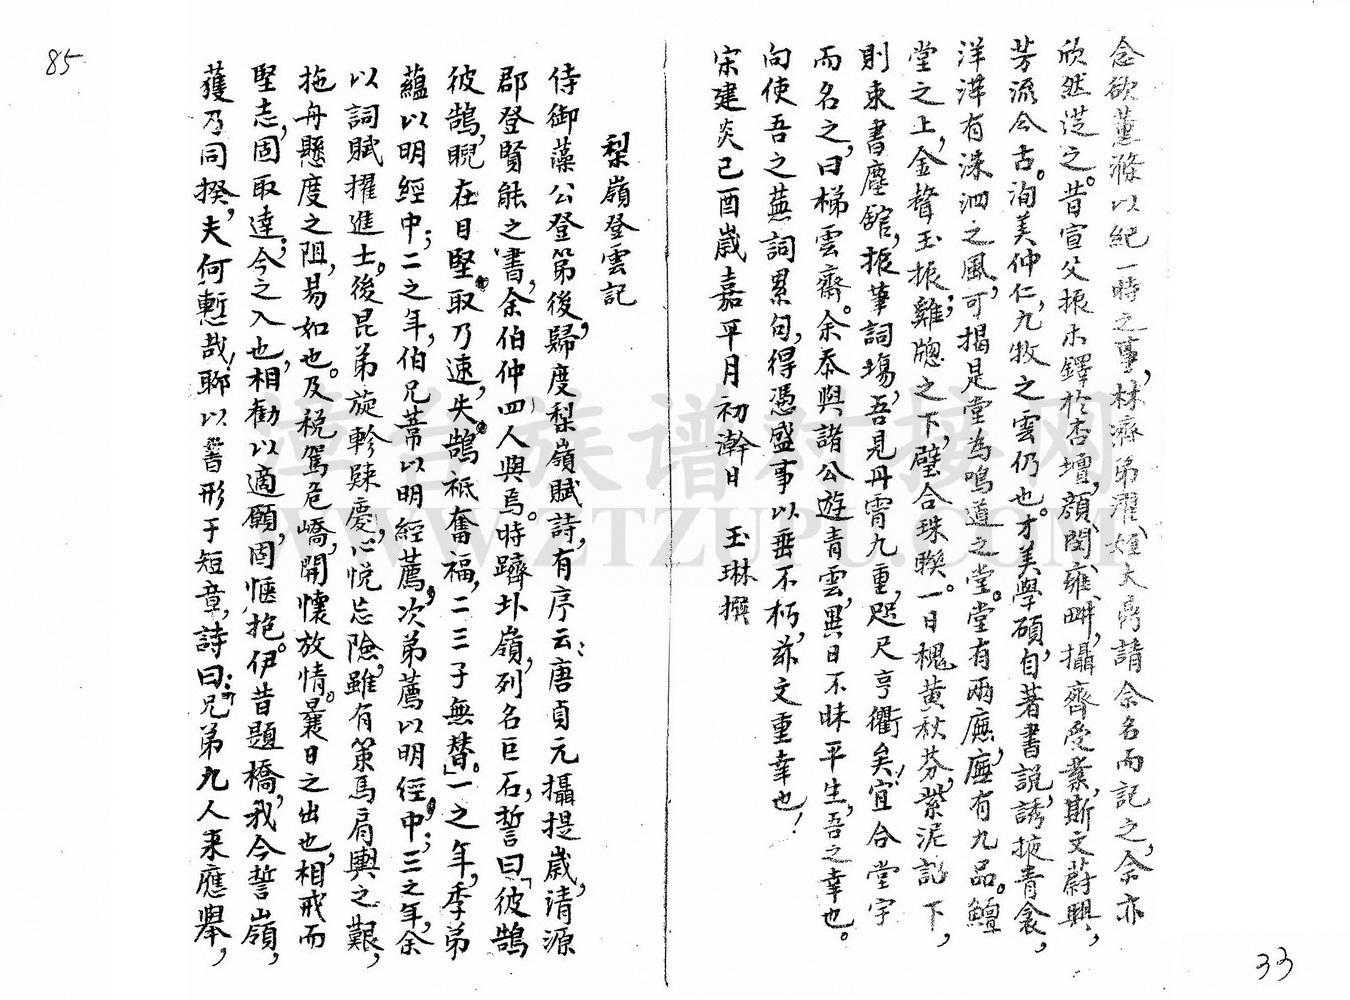 念欲薰滌以紀一時之事，林濟弟濯、嬗大亮請余名而記之，余亦
欣然從之。昔宣父振木鐸於杏壇，顏、閔、雍、畊，攝齊受業，斯文蔚興，
芳流今古。洵美仲仁，九牧之雲仍也。才美學碩，自著書說，誘掖青衾，
洋洋有洙泗之風，可揭是堂為鳴道之堂。堂有兩廡，廡有九品。鱣
堂之上，金聲玉振；雞牕之下，璧合珠聯。一日槐黃秋芬，紫泥記下，
則束書塵舘，振筆詞場，吾見丹霄九重，咫尺亨衢矣！宜合堂宇
而名之，曰梯雲齋。余忝與諸公遊青雲，異日不昧平生，吾之幸也。
向使吾之蕪詞累句，得憑盛事以垂不朽，茲文重幸也！
宋建炎己酉歲嘉平月初澣日 玉琳撰
33
85
梨嶺登雲記
侍御藻公登第後，歸度梨嶺賦詩，有序云：唐貞元攝提歲，清源
郡登賢能之書，余伯仲四人與焉。時躋圤嶺，列名巨石，誓曰「彼鵠
彼鵠，睨在目堅。取乃速，失鵠祇奮福，二三子無替。」一之年，季弟
蘊以明經中；二之年，伯兄葦以明經薦，次弟薦以明經中；三之年，余
以詞賦擢進士。後昆弟旋軫賕慶，心悅忘險，雖有策馬肩輿之艱，
拖舟懸度之阻，易如也。及稅駕危嶠，開懷放情。曩日之出也，相戒而
堅志，固取達；今之入也，相勸以適願，固愜抱。伊昔題橋，我今誓嶺，
獲乃同揆，夫何慙哉！聊以書形于短章，詩曰：兄弟九人来應舉，
漳台族谱对接网
WWW.ZTZUPU.COM